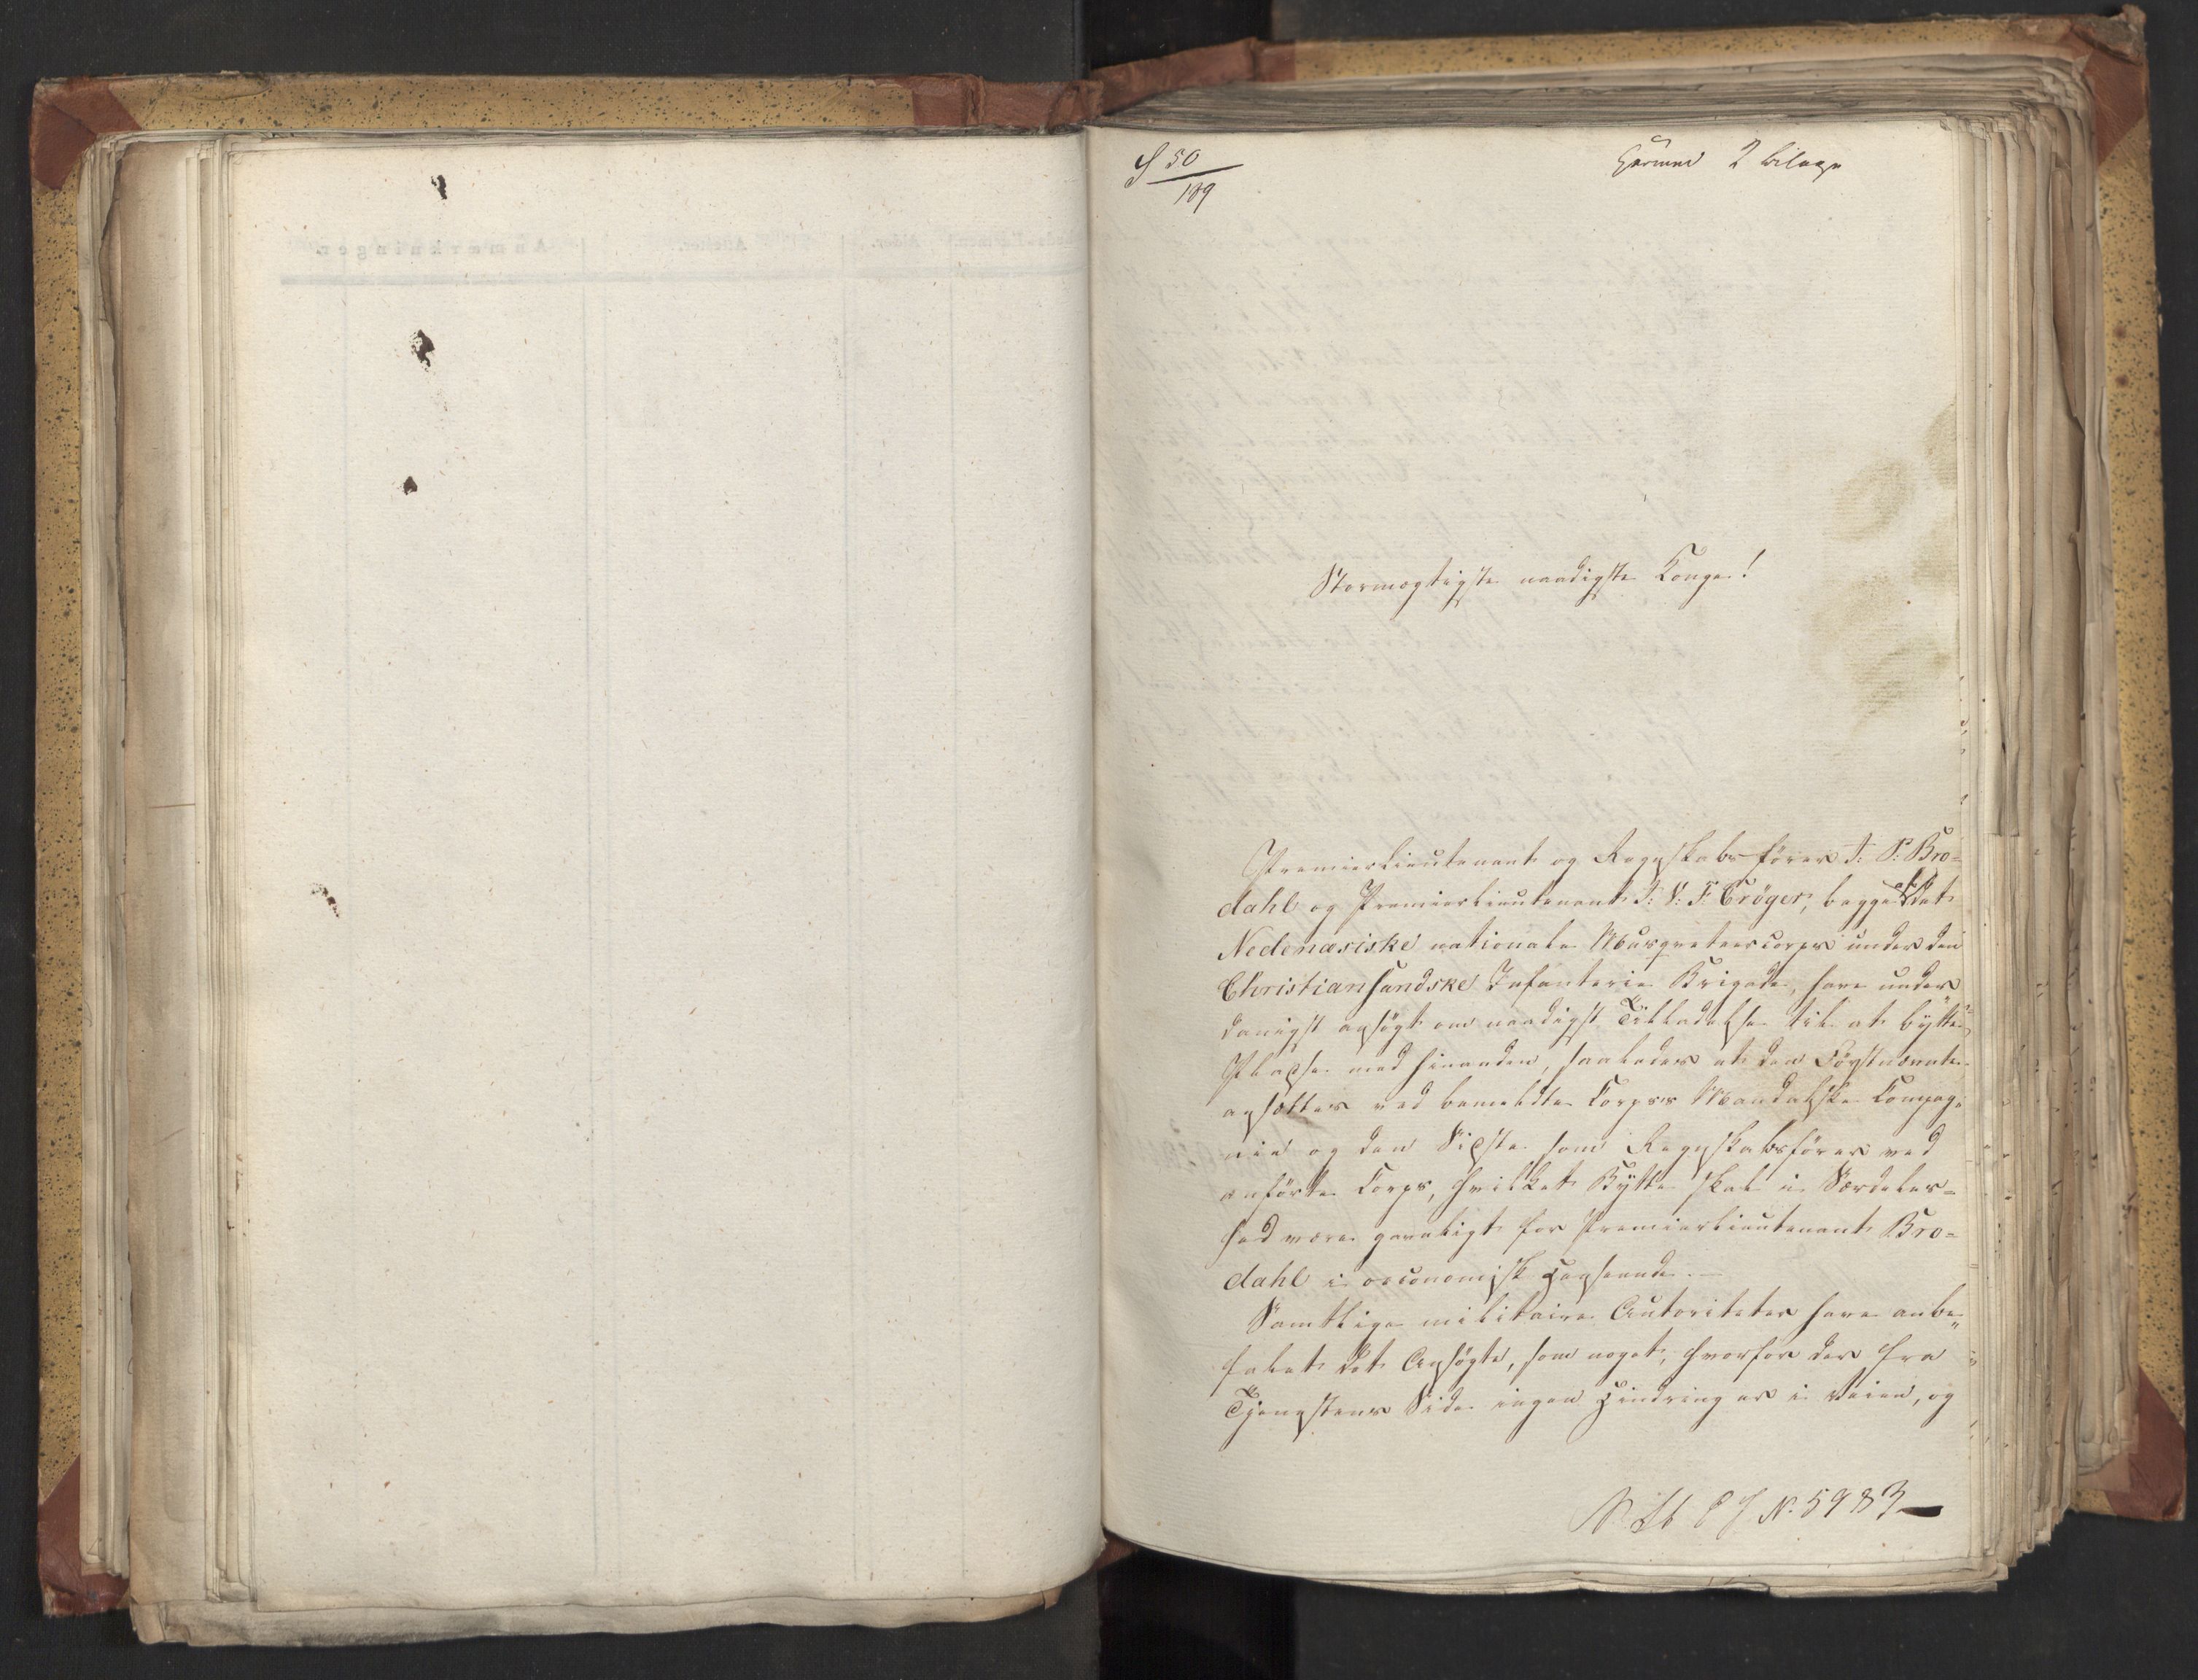 S 50
189
Hermed 2 bilage
Stormægtigste naadigste Konge!
Premierlieutenant og Regnskabsfører J: P: Bro-
dahl og Premierlieutenant J: V: F: Crøger, begge af det
Nedenæsiske nationale Musqueteercorps under den
Christiansandske Infanterie Brigade, have under
danigst ansøgt om naadigst Tilladelse til at bytte
Pladse med hinanden, saaledes at den Førstnævnte
ansættes ved bemeldte Corps's Mandalske Compag-
nie og den Sidste som Regnskabsfører ved
anførte Corps, hvilket Bytte skal i Særdeles-
hed være gavnligt for Premierlieutenant Bro-
dahl i oeconomisk Henseende. —
Samtlige militaire Autoriteter have anbe-
falet det Ansøgte, som noget, hvorfor der fra
Tjenestens Side ingen Hindring er i Veien, og
No. 5983
Anmærkninger.
Attester.
Alder.